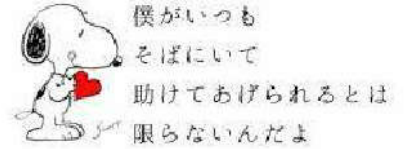 僕がいつも
そばにいて
助けてあげられるとは
限らないんだよ